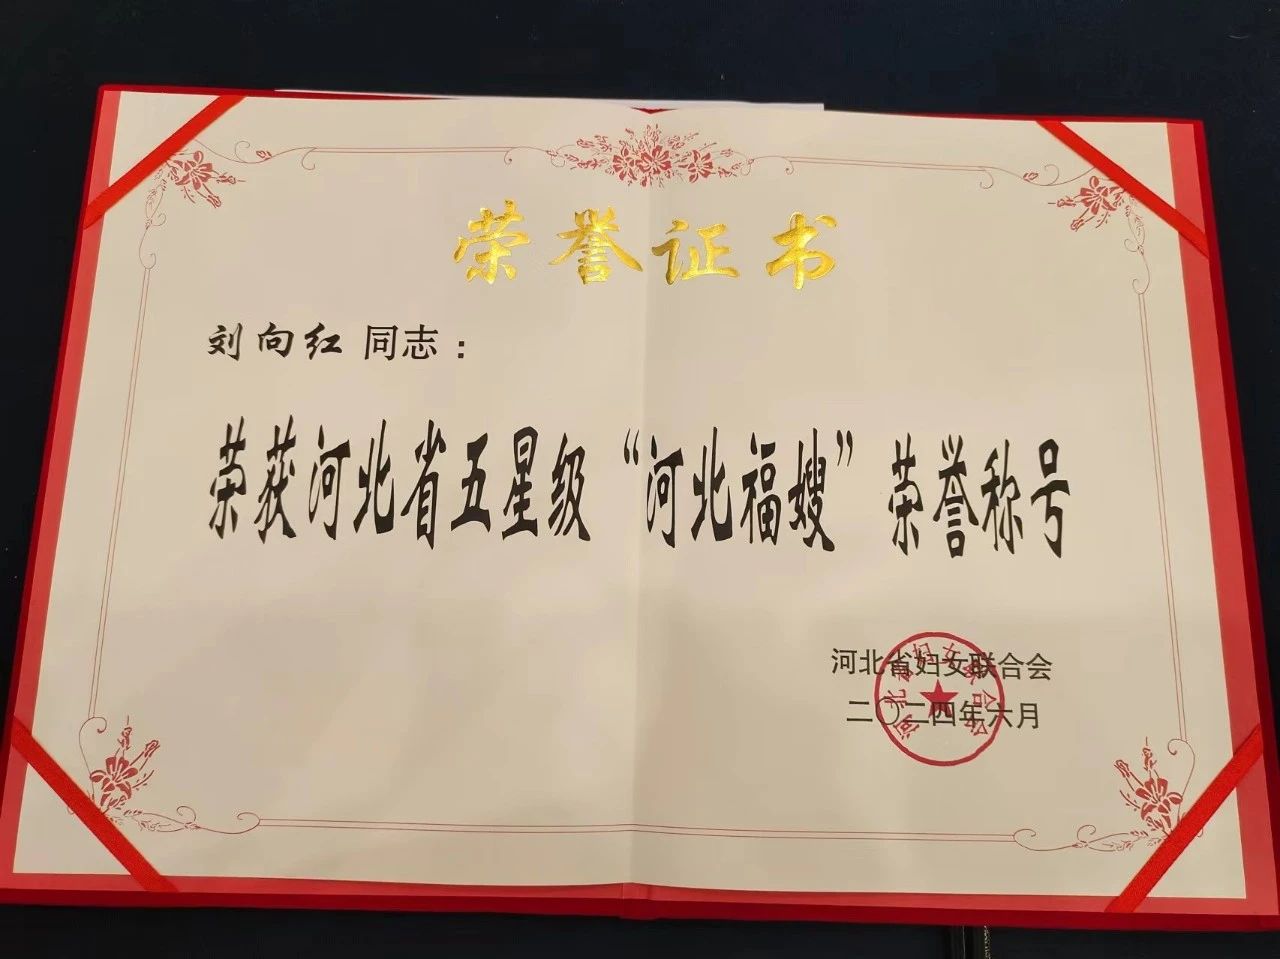 荣誉证书
刘向红 同志：
荣获河北省五星级“河北福嫂”荣誉称号
河北省妇女联合会
二〇二四年六月
河北省妇女联合会